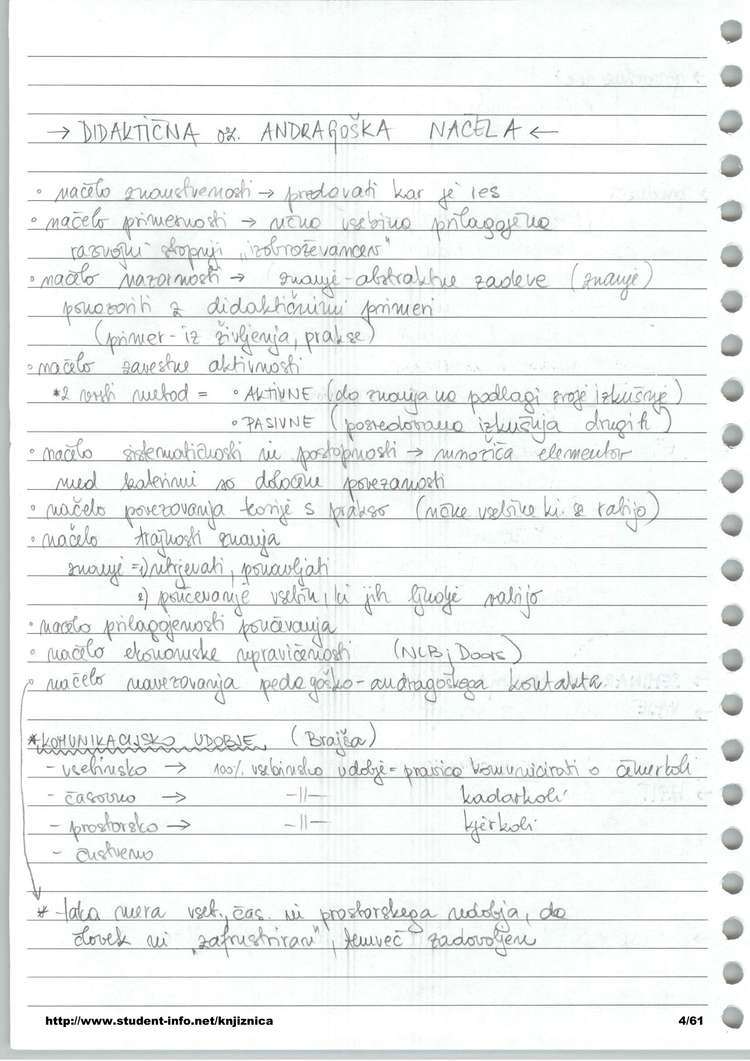 → DIDAKTIČNA oz. ANDRAGOŠKA NAČELA ←
• načelo znanstvenosti → predavati kar je res
• načelo primernosti → učno vsebino prilagojeno
razvojni stopnji „izobraževancev"
• načelo nazornosti → znanje - abstraktne zadeve (znanje)
ponazoriti z didaktičnimi primeri
(primer - iz življenja, prakse)
• načelo zavestne aktivnosti
*2 vrsti metod = • AKTIVNE (do znanja na podlagi svoje izkušnje)
• PASIVNE (posredovana izkušnja drugih)
• načelo sistematičnosti in postopnosti → množica elementov
med katerimi so določene povezanosti
• načelo povezovanja teorije s prakso (učne vsebine ki se rabijo)
• načelo trajnosti znanja
znanje = 1) utrjevati, ponavljati
2) poučevanje vsebin, ki jih ljudje rabijo
• načelo prilagojenosti poučevanja
• načelo ekonomske upravičenosti (NLB; Doors)
• načelo navezovanja pedagoško-andragoškega kontakta
*KOMUNIKACIJSKO UDOBJE (Brajša)
- vsebinsko → 100% vsebinsko udobje = pravica komunicirati o čemerkoli
- časovno → -||- kadarkoli
- prostorsko → -||- kjerkoli
- čustveno
* - taka mera vseb., čas. in prostorskega udobja, da
človek ni „zafrustriran", temveč zadovoljen
http://www.student-info.net/knjiznica
4/61